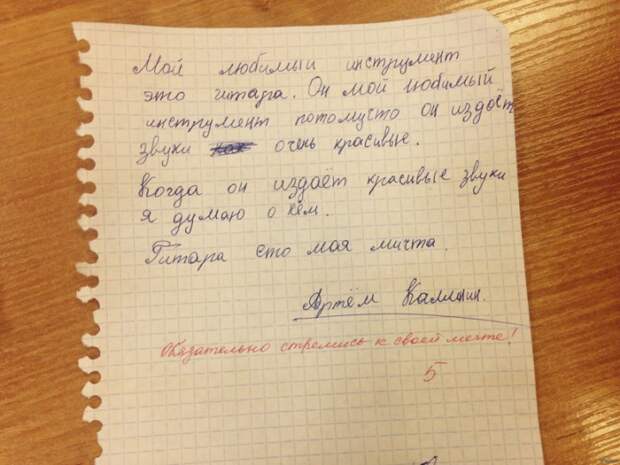 Мой любимый инструмент
это гитара. Он мой любимый
инструмент потомучто он издаёт
звуки очень красивые.
Когда он издаёт красивые звуки
я думаю о нём.
Гитара ето моя мичта.
Артём
Обязательно стремись к своей мечте!
5